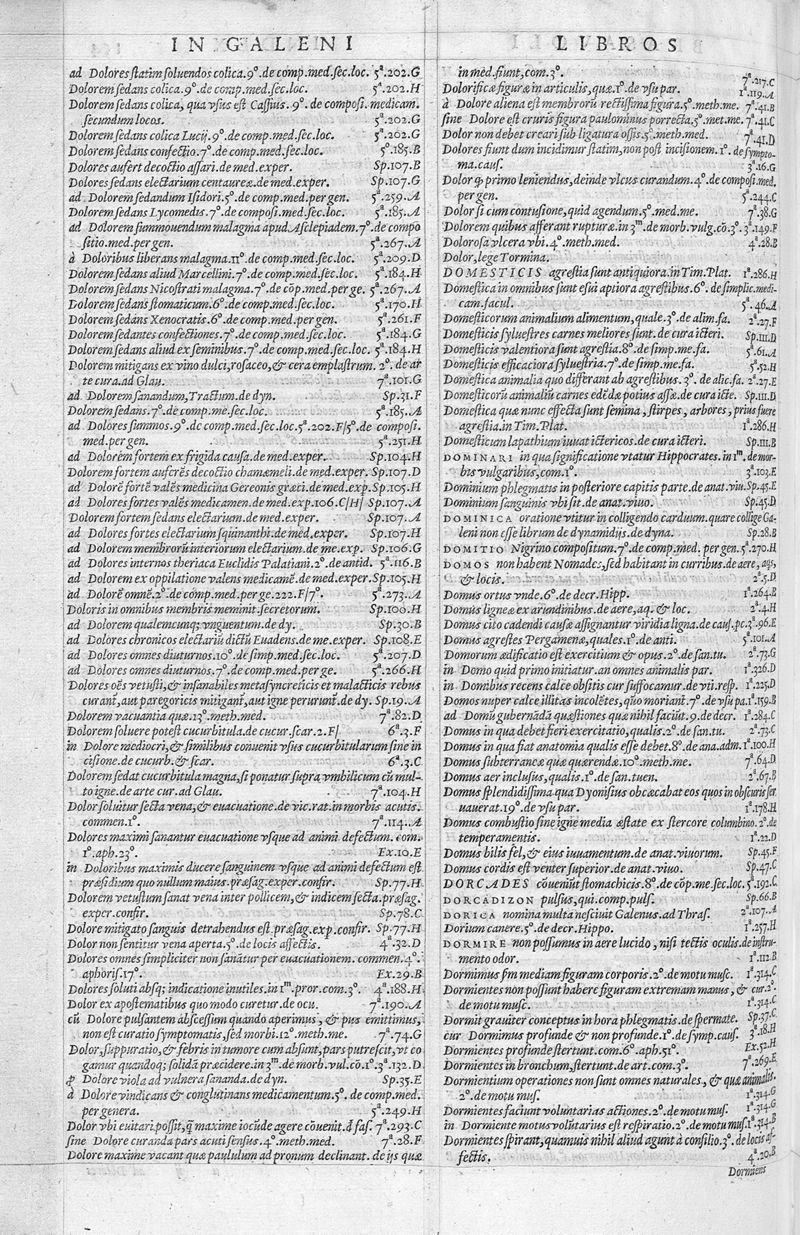 IN GALENI
ad Dolores statim soluendos colica.9°.de comp.med.sec.loc. 5ª.202.G
Dolorem sedans colica.9°.de comp.med.sec.loc. 5ª.202.H
Dolorem sedans colica, qua vsus est Cassius.9°.de composi. medicam.
secundum locos. 5ª.202.G
Dolorem sedans colica Lucij.9°.de comp.med.sec.loc. 5ª.202.G
Dolorem sedans confectio.7°.de comp.med.sec.loc. 5ª.185.B
Dolores aufert decoctio assari.de med.exper. Sp.107.B
Dolores sedans electarium centaureæ.de med.exper. Sp.107.G
ad Dolorem sedandum Isidori.5°.de comp.med.per gen. 5ª.259.A
Dolorem sedans Lycomedis.7°.de composi.med.sec.loc. 5ª.185.A
ad Dolorem summouendum malagma apud Asclepiadem.7°.de compo
sitio.med.per gen. 5ª.267.A
à Doloribus liberans malagma.11°.de comp.med.sec.loc. 5ª.209.D
Dolorem sedans aliud Marcellini.7°.de comp.med.sec.loc. 5ª.184.H
Dolorem sedans Nicostrati malagma.7°.de cõp.med.per ge. 5ª.267.A
Dolorem sedans stomaticum.6°.de comp.med.sec.loc. 5ª.170.H
Dolorem sedans Xenocratis.6°.de comp.med.per gen. 5ª.261.F
Dolorem sedantes confectiones.7°.de comp.med.sec.loc. 5ª.184.G
Dolorem sedans aliud ex seminibus.7°.de comp.med.sec.loc. 5ª.184.H
Dolorem mitigans ex vino dulci,rosaceo,& cera emplastrum. 2°.de ar
te cura.ad Glau. 7ª.101.G
ad Dolorem sanandum,Tractum.de dyn. Sp.31.F
Dolorem sedans.7°.de comp.me.sec.loc. 5ª.185.A
ad Dolores summos.9°.de comp.med.sec.loc.5ª.202.F/5°.de composi.
med.per gen. 5ª.251.H
ad Dolorem fortem ex frigida causa.de med.exper. Sp.104.H
Dolorem fortem auferẽs decoctio chamæmeli.de med.exper. Sp.107.D
ad Dolorẽ fortẽ valẽs medicina Gereonis græci.de med.exp. Sp.105.H
ad Dolores fortes valẽs medicamen.de med.exp.106.C/H/ Sp.107.A
Dolorem fortem sedans electarium.de med.exper. Sp.107.A
ad Dolores fortes electarium squinanthi.de med.exper. Sp.107.H
ad Dolorem membrorũ interiorum electarium.de me.exp. Sp.106.G
ad Dolores internos theriaca Euclidis Palatiani.2°.de antid. 5ª.116.B
ad Dolorem ex oppilatione valens medicamẽ.de med.exper. Sp.105.H
ad Dolorẽ omnẽ.2°.de comp.med.per ge.222.F/7°. 5ª.273.A
Doloris in omnibus membris meminit secretorum. Sp.100.H
ad Dolorem qualemcunq; vnguentum.de dy. Sp.30.B
ad Dolores chronicos electariũ dictũ Euadens.de me.exper. Sp.108.E
ad Dolores omnes diuturnos.10°.de simp.med.sec.loc. 5ª.207.D
ad Dolores omnes diuturnos.7°.de comp.med.per ge. 5ª.266.H
Dolores oẽs vetusti,& insanabiles metasyncreticis et malacticis rebus
curant,aut paregoricis mitigant,aut igne perurunt.de dy. Sp.19.A
Dolorem vacuantia quæ.13°.meth.med. 7ª.82.D
Dolorem soluere potest cucurbitula.de cucur.scar.2.F/ 6ª.3.F
in Dolore mediocri,& similibus conuenit vsus cucurbitularum sine in
cisione.de cucurb.& scar. 6ª.3.C
Dolorem sedat cucurbitula magna,si ponatur supra vmbilicum cũ mul-
to igne.de arte cur.ad Glau. 7ª.104.H
Dolor soluitur secta vena,& euacuatione.de vic.rat.in morbis acutis.
commen.1°. 7ª.114.A
Dolores maximi sanantur euacuatione vsque ad animi defectum. com.
1°.aph.23°. Ex.10.E
in Doloribus maximis ducere sanguinem vsque ad animi defectum est
præsidium quo nullum maius.præsag.exper.confir. Sp.77.H
Dolorem vetustum sanat vena inter pollicem,& indicem secta.præsag.
exper.confir. Sp.78.C
Dolore mitigato sanguis detrahendus est.præsag.exp.confir. Sp.77.H
Dolor non sentitur vena aperta.5°.de locis affectis. 4ª.32.D
Dolores omnes simpliciter non sanatur per euacuationem. commen.4°.
aphoris.17°. Ex.29.B
Dolores soluti absq; indicatione inutiles.in 1ᵐ.pror.com.3°. 4ª.188.H
Dolor ex apostematibus quo modo curetur.de ocu. 7ª.190.A
cũ Dolore pulsantem abscessum quando aperimus, & pus emittimus,
non est curatio symptomatis,sed morbi.12°.meth.me. 7ª.74.G
Dolor,suppuratio,& febris in tumore cum absunt,pars putrescit,vt co
gamur quandoq; solidã præcidere.in 3ᵐ.de morb.vul.cõ.1°.3ª.132.D
ꝓ Dolore viola ad vulnera sananda.de dyn. Sp.35.E
à Dolore vindicans & conglutinans medicamentum.5°. de comp.med.
per genera. 5ª.249.H
Dolor vbi euitari possit,q̃ maxime iocũde agere cõuenit.d fas. 7ª.293.C
sine Dolore curanda pars acuti sensus.4°.meth.med. 7ª.28.F
Dolore maxime vacant quæ paululum ad pronum declinant. de ijs quæ
LIBROS
in med.fiunt,com.3°. 7ª.217.C
Dolorificæ figuræ in articulis,quæ.1°.de vsu par. 1ª.119.A
à Dolore aliena est membrorũ rectissima figura.5°.meth.me. 7ª.41.B
sine Dolore est cruris figura paulominus porrecta.5°.met.me. 7ª.41.C
Dolor non debet creari sub ligatura ossis.5°.meth.med. 7ª.41.D
Dolores fiunt dum incidimur statim,non post incisionem.1°. de sympto-
ma.caus. 3ª.16.G
Dolor ꝙ primo leniendus,deinde vlcus curandum.4°.de composi.med.
per gen. 5ª.244.C
Dolor si cum contusione,quid agendum.5°.med.me. 7ª.38.G
Dolorem quibus afferant rupturæ.in 3ᵐ.de morb.vulg.cõ.3°. 3ª.149.F
Dolorosa vlcera vbi.4°.meth.med. 4ª.28.B
Dolor,lege Tormina.
DOMESTICIS agrestia sunt antiquiora.in Tim.Plat. 1ª.286.H
Domestica in omnibus sunt esui aptiora agrestibus.6°. de simplic.medi-
cam.facul. 5ª.46.A
Domesticorum animalium alimentum,quale.3°.de alim.fa. 2ª.27.F
Domesticis syluestres carnes meliores sunt.de cura icteri. Sp.111.D
Domesticis valentiora sunt agrestia.8°.de simp.me.fa. 5ª.61.A
Domesticis efficaciora syluestria.7°.de simp.me.fa. 5ª.52.H
Domestica animalia quo differant ab agrestibus.3°.de alic.fa. 2ª.27.E
Domesticorũ animaliũ carnes edẽdæ potius assæ.de cura icte. Sp.111.D
Domestica quæ nunc effecta sunt semina,stirpes,arbores,prius fuere
agrestia.in Tim.Plat. 1ª.286.H
Domesticum lapathium iuuat ictericos.de cura icteri. Sp.111.B
DOMINARI in qua significatione vtatur Hippocrates.in 1ᵐ.de mor-
bis vulgaribus,com.1°. 3ª.103.E
Dominium phlegmatis in posteriore capitis parte.de anat.viu.Sp.45.E
Dominium sanguinis vbi sit.de anat.viuo. Sp.45.D
DOMINICA oratione vtitur in colligendo carduum.quare collige Ga-
leni non esse librum de dynamidijs.de dyna. Sp.28.B
DOMITIO Nigrino compositum.7°.de comp.med. per gen. 5ª.270.H
DOMOS non habent Nomades,sed habitant in curribus.de aere,aqs,
& locis. 2ª.5.D
Domus ortus vnde.6°.de decr.Hipp. 1ª.264.B
Domus ligneæ ex arundinibus.de aere,aq.& loc. 2ª.4.H
Domus cito cadendi causæ assignantur viridia ligna.de caus.pc. 3ª.96.E
Domus agrestes Pergamenæ,quales.1°.de anti. 5ª.101.A
Domorum ædificatio est exercitium & opus.2°.de san.tu. 2ª.73.G
in Domo quid primo initiatur.an omnes animalis par. 1ª.326.D
in Domibus recens calce obsitis cur suffocamur.de vti.resp. 1ª.225.D
Domos nuper calce illitas incolẽtes,quo moriant̃.7°.de vsu pa. 1ª.159.B
ad Domũ gubernãdã quæstiones quæ nihil faciũt.9.de decr. 1ª.284.C
Domus in qua debet fieri exercitatio,qualis.2°.de san.tu. 2ª.73.C
Domus in qua fiat anatomia qualis esse debet.8°.de ana.adm. 1ª.100.H
Domus subterraneæ quæ quærendæ.10°.meth.me. 7ª.64.D
Domus aer inclusus,qualis.1°.de san.tuen. 2ª.67.B
Domus splendidissima qua Dyonisius obcæcabat eos quos in obscuris ser
uauerat.19°.de vsu par. 1ª.178.H
Domus combustio sine igne media æstate ex stercore columbino.2°.de
temperamentis. 1ª.22.D
Domus bilis fel,& eius iuuamentum.de anat.viuorum. Sp.45.F
Domus cordis est venter superior.de anat.viuo. Sp.47.C
DORCADES cõueniũt stomachicis.8°.de cõp.me.sec.loc. 5ª.192.C
DORCADIZON pulsus,qui.comp.puls. Sp.66.B
DORICA nomina multa nesciuit Galenus.ad Thras. 2ª.107.A
Dorium canere.5°.de decr.Hippo. 1ª.257.H
DORMIRE non possumus in aere lucido, nisi tectis oculis.de instru-
mento odor. 1ª.112.B
Dormimus sm mediam figuram corporis.2°.de motu musc. 1ª.314.C
Dormientes non possunt habere figuram extremam manus,& cur.2°.
de motu musc. 1ª.314.C
Dormit grauiter conceptus in hora phlegmatis.de spermate. Sp.37.C
cur Dormimus profunde & non profunde.1°.de symp.caus. 3ª.18.H
Dormientes profunde stertunt.com.6°.aph.51°. Ex.52.H
Dormientes in bronchum,stertunt.de art.com.3°. 7ª.269.E
Dormientium operationes non sunt omnes naturales,& quæ animalis.
2°.de motu mus. 1ª.314.G
Dormientes faciunt voluntarias actiones.2°.de motu mus. 1ª.314.G
in Dormiente motus volũtarius est respiratio.2°.de motu mus. 1ª.314.B
Dormientes spirant,quamuis nihil aliud agunt à consilio.3°.de locis af-
fectis. 4ª.20.B
Dormiens